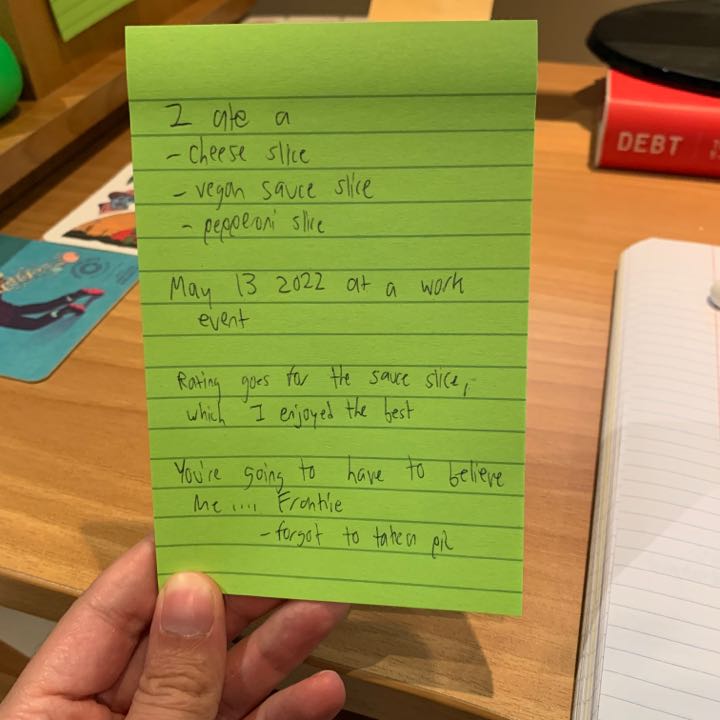 I ate a
- cheese slice
- vegan sauce slice
- pepperoni slice
May 13 2022 at a work
event
Rating goes for the sauce slice,
which I enjoyed the best
You're going to have to believe
me .... Frankie
- forgot to take a pic
DEBT